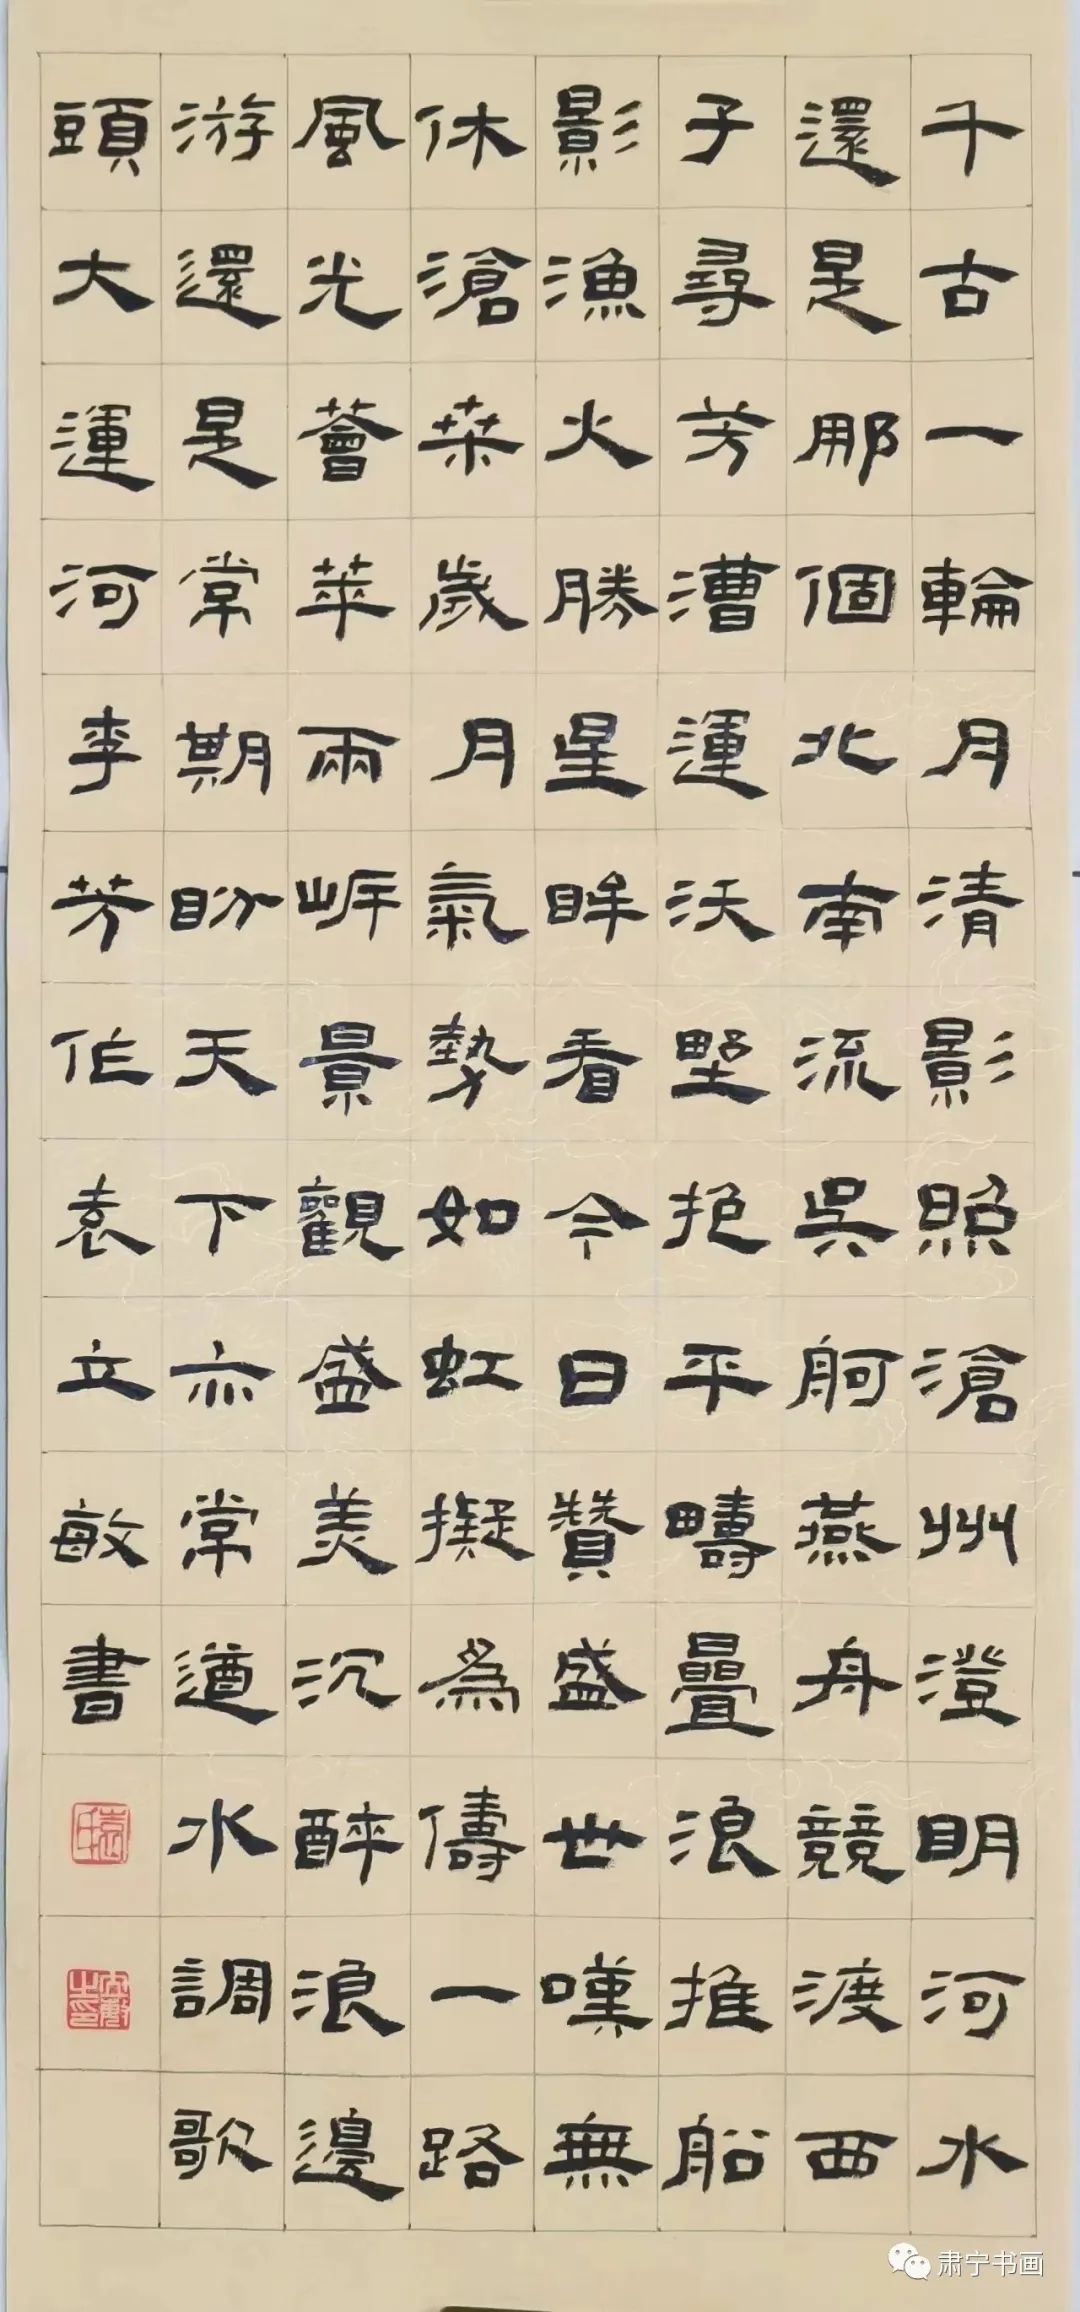 千古一輪月清影照滄州澄明河水
還是那個北南流吳舸燕舟競渡西
子尋芳漕運沃野抱平疇疊浪推船
影漁火勝星眸看今日贊盛世嘆無
休滄桑歲月氣勢如虹擬為儔一路
風光薈萃兩岸景觀盛美沉醉浪邊
游還是常期盼天下亦常遒水調歌
頭大運河李芳作袁立敏書
肃宁书画